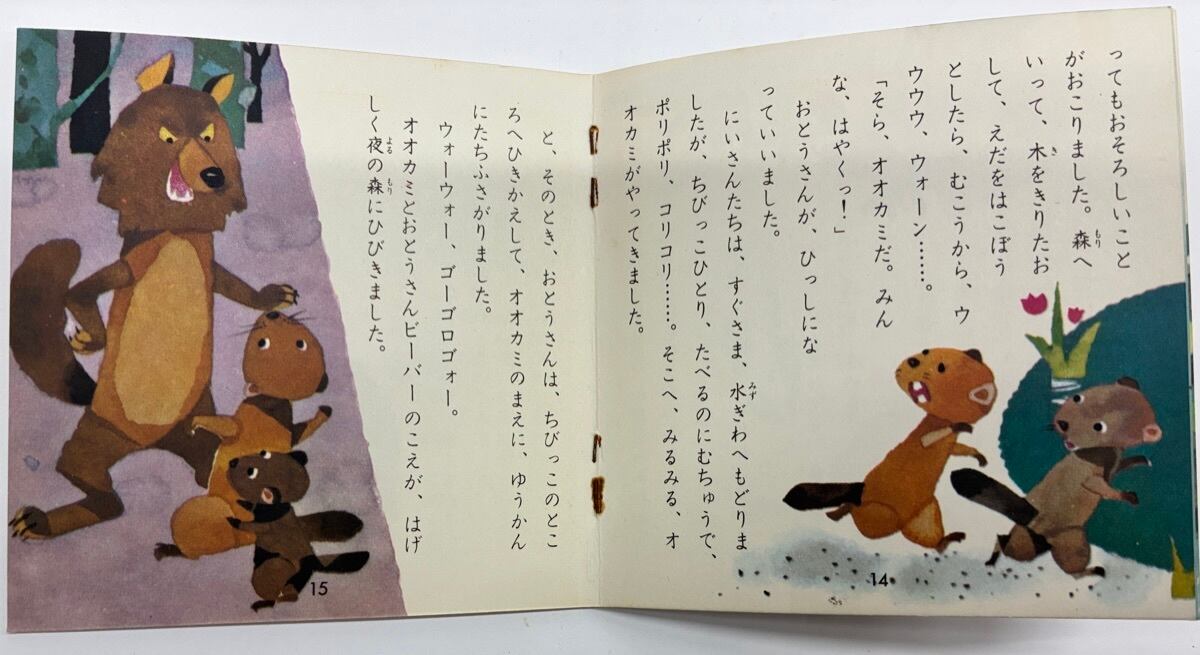 ってもおそろしいこと
がおこりました。森へ
いって、木をきりたお
して、えだをはこぼう
としたら、むこうから、ウ
ウウウ、ウォーン……。
「そら、オオカミだ。みん
な、はやくっ！」
おとうさんが、ひっしにな
っていいました。
にいさんたちは、すぐさま、水ぎわへもどりま
したが、ちびっこひとり、たべるのにむちゅうで、
ポリポリ、コリコリ……。そこへ、みるみる、オ
オカミがやってきました。
14
と、そのとき、おとうさんは、ちびっこのとこ
ろへひきかえして、オオカミのまえに、ゆうかん
にたちふさがりました。
ウォーウォー、ゴーゴロゴォー。
オオカミとおとうさんビーバーのこえが、はげ
しく夜の森にひびきました。
15